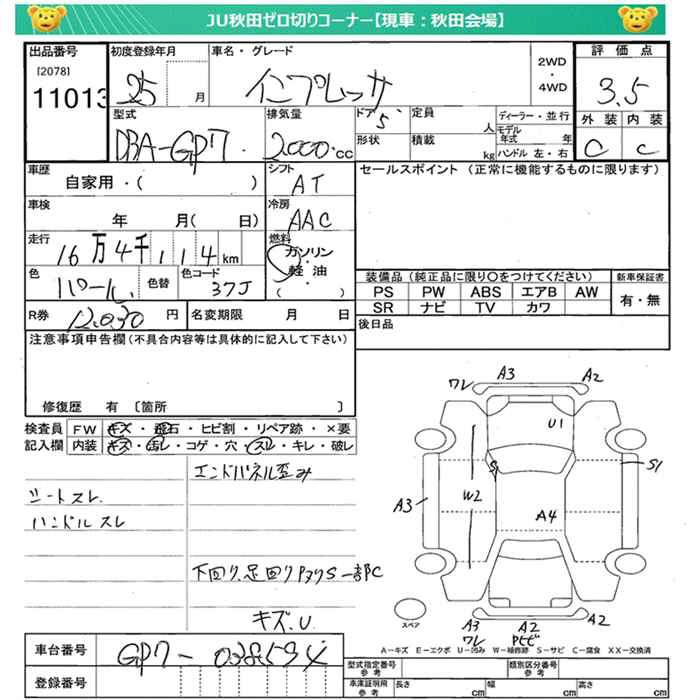 JU秋田ゼロ切りコーナー【現車：秋田会場】
出品番号 初度登録年月 車名・グレード 2WD・4WD 評価点
[2078]
11013 25 月 インプレッサ 3.5
型式 排気量 ドア 定員 人 ディーラー・並行 外装 内装
DBA-GP7 2000cc 5 形状 積載 kg モデル年式 年 ハンドル 左・右 C C
車歴 シフト セールスポイント（正常に機能するものに限ります）
自家用・（ ） AT
車検 冷房
年 月（ 日） AAC
走行 燃料
16万4千114km ガソリン
軽油
（ ）
色 色替 色コード 装備品（純正品に限り○をつけてください） 新車保証書
パール 37J PS PW ABS エアB AW 有・無
SR ナビ TV カワ
R券 12,030円 名変期限 月 日 後日品
注意事項申告欄（不具合内容等は具体的に記入して下さい）
修復歴 有 〔箇所 〕
検査員 FW キズ・飛石・ヒビ割・リペア跡・×要
記入欄 内装 キズ・汚レ・コゲ・穴・スレ・キレ・破レ
エンドパネル歪み
シートスレ
ハンドルスレ
下回り、足回りサビS一部C
キズ、U
ワレ A3 A2
U1
S1 S1
A3 W2
A4
スペア
A3 A2 A2
ワレ ヒビ
A－キズ E－エクボ U－凹み W－補修跡 S－サビ C－腐食 XX－交換済
車台番号 GP7-
登録番号
型式指定番号 参考 類別区分番号 参考
車庫証明用 参考 長さ cm 幅 cm 高さ cm